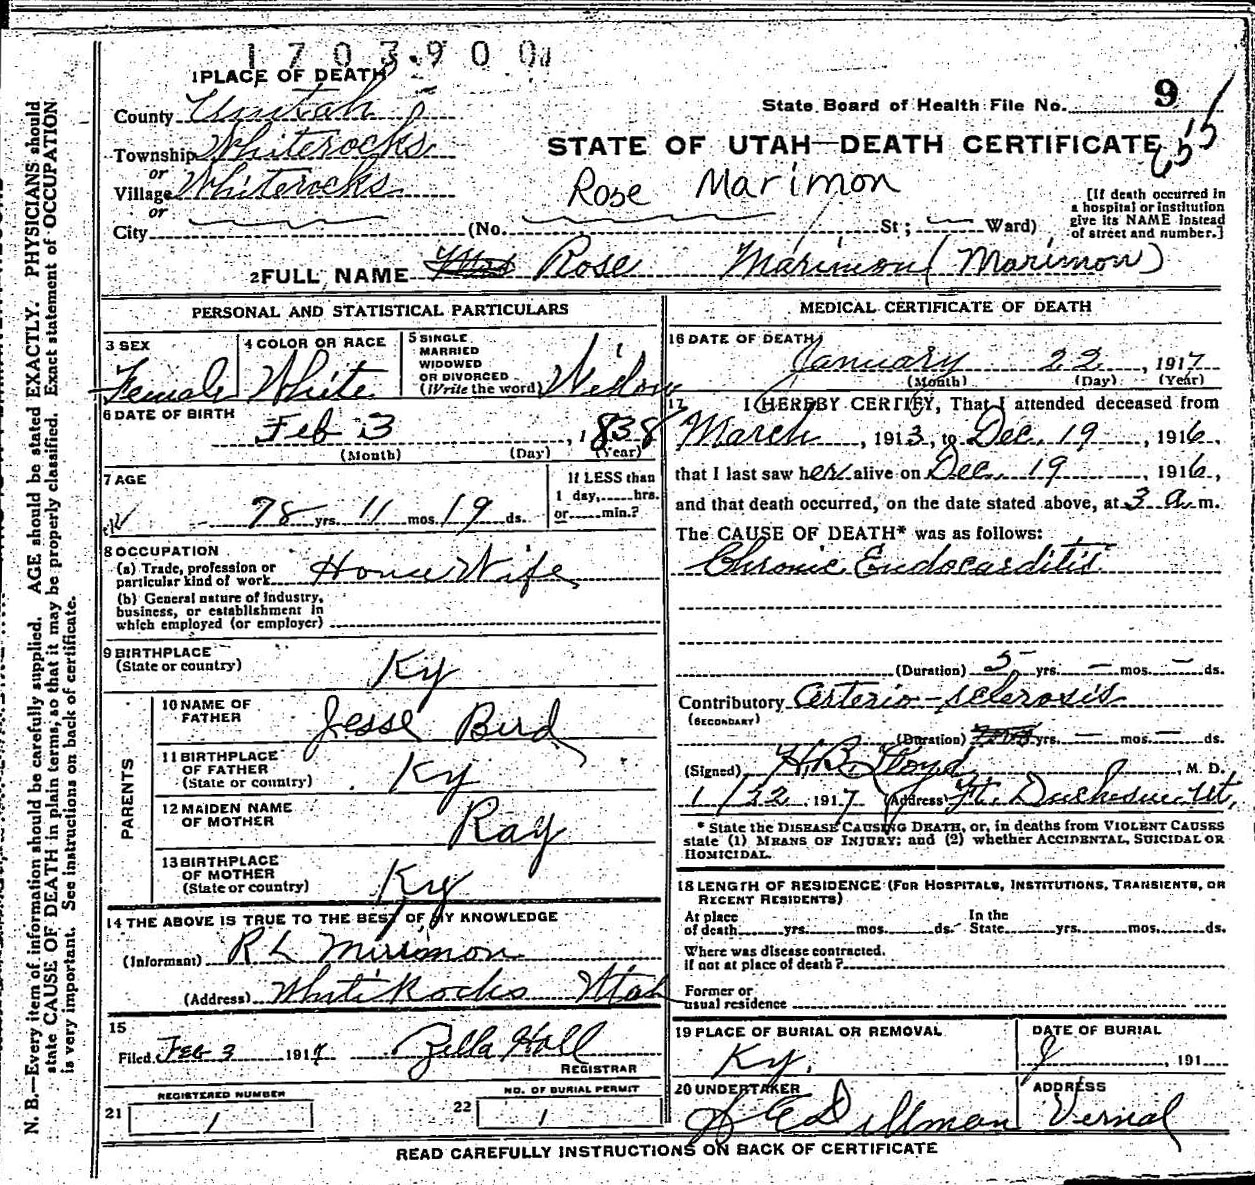 1703900
1 PLACE OF DEATH
County Uintah
State Board of Health File No. 9
Township Whiterocks
STATE OF UTAH—DEATH CERTIFICATE
or
Village Whiterocks
Rose Marimon
or
City (No. St; Ward)
[If death occurred in
a hospital or institution
give its NAME instead
of street and number.]
2 FULL NAME Rose Marimon (Marimon)
PERSONAL AND STATISTICAL PARTICULARS
3 SEX
Female
4 COLOR OR RACE
White
5 SINGLE
MARRIED
WIDOWED
OR DIVORCED
(Write the word) Widow
6 DATE OF BIRTH
Feb 3, 1838
(Month) (Day) (Year)
7 AGE
78 yrs. 11 mos. 19 ds.
If LESS than
1 day, hrs.
or min.?
8 OCCUPATION
(a) Trade, profession or
particular kind of work House Wife
(b) General nature of Industry,
business, or establishment in
which employed (or employer)
9 BIRTHPLACE
(State or country) Ky
PARENTS
10 NAME OF
FATHER Jesse Bird
11 BIRTHPLACE
OF FATHER
(State or country) Ky
12 MAIDEN NAME
OF MOTHER Ray
13 BIRTHPLACE
OF MOTHER
(State or country) Ky
14 THE ABOVE IS TRUE TO THE BEST OF MY KNOWLEDGE
(Informant) R L Mirrimon
(Address) White Rocks Utah
15
Filed Feb 3 1917 Zella Hall
REGISTRAR
REGISTERED NUMBER
21 1
NO. OF BURIAL PERMIT
22 1
MEDICAL CERTIFICATE OF DEATH
16 DATE OF DEATH
January 22, 1917
(Month) (Day) (Year)
17 I HEREBY CERTIFY, That I attended deceased from
March, 1913, to Dec. 19, 1916,
that I last saw her alive on Dec. 19, 1916,
and that death occurred, on the date stated above, at 3 a m.
The CAUSE OF DEATH* was as follows:
Chronic Endocarditis
(Duration) 5 yrs. — mos. — ds.
Contributory Arterio-sclerosis
(SECONDARY)
(Duration) yrs. — mos. — ds.
(Signed) H.B. Lloyd, M. D.
1/22 1917 (Address) Ft. Duchesne Ut.
* State the DISEASE CAUSING DEATH, or, in deaths from VIOLENT CAUSES
state (1) MEANS OF INJURY; and (2) whether ACCIDENTAL, SUICIDAL OR
HOMICIDAL.
18 LENGTH OF RESIDENCE (FOR HOSPITALS, INSTITUTIONS, TRANSIENTS, OR
RECENT RESIDENTS)
At place
of death yrs. mos. ds.
In the
State yrs. mos. ds.
Where was disease contracted,
if not at place of death?
Former or
usual residence
19 PLACE OF BURIAL OR REMOVAL
Ky.
DATE OF BURIAL
191
20 UNDERTAKER
Dillman
ADDRESS
Vernal
READ CAREFULLY INSTRUCTIONS ON BACK OF CERTIFICATE
N. B.—Every item of information should be carefully supplied. AGE should be stated EXACTLY. PHYSICIANS should
state CAUSE OF DEATH in plain terms, so that it may be properly classified. Exact statement of OCCUPATION
is very important. See instructions on back of certificate.